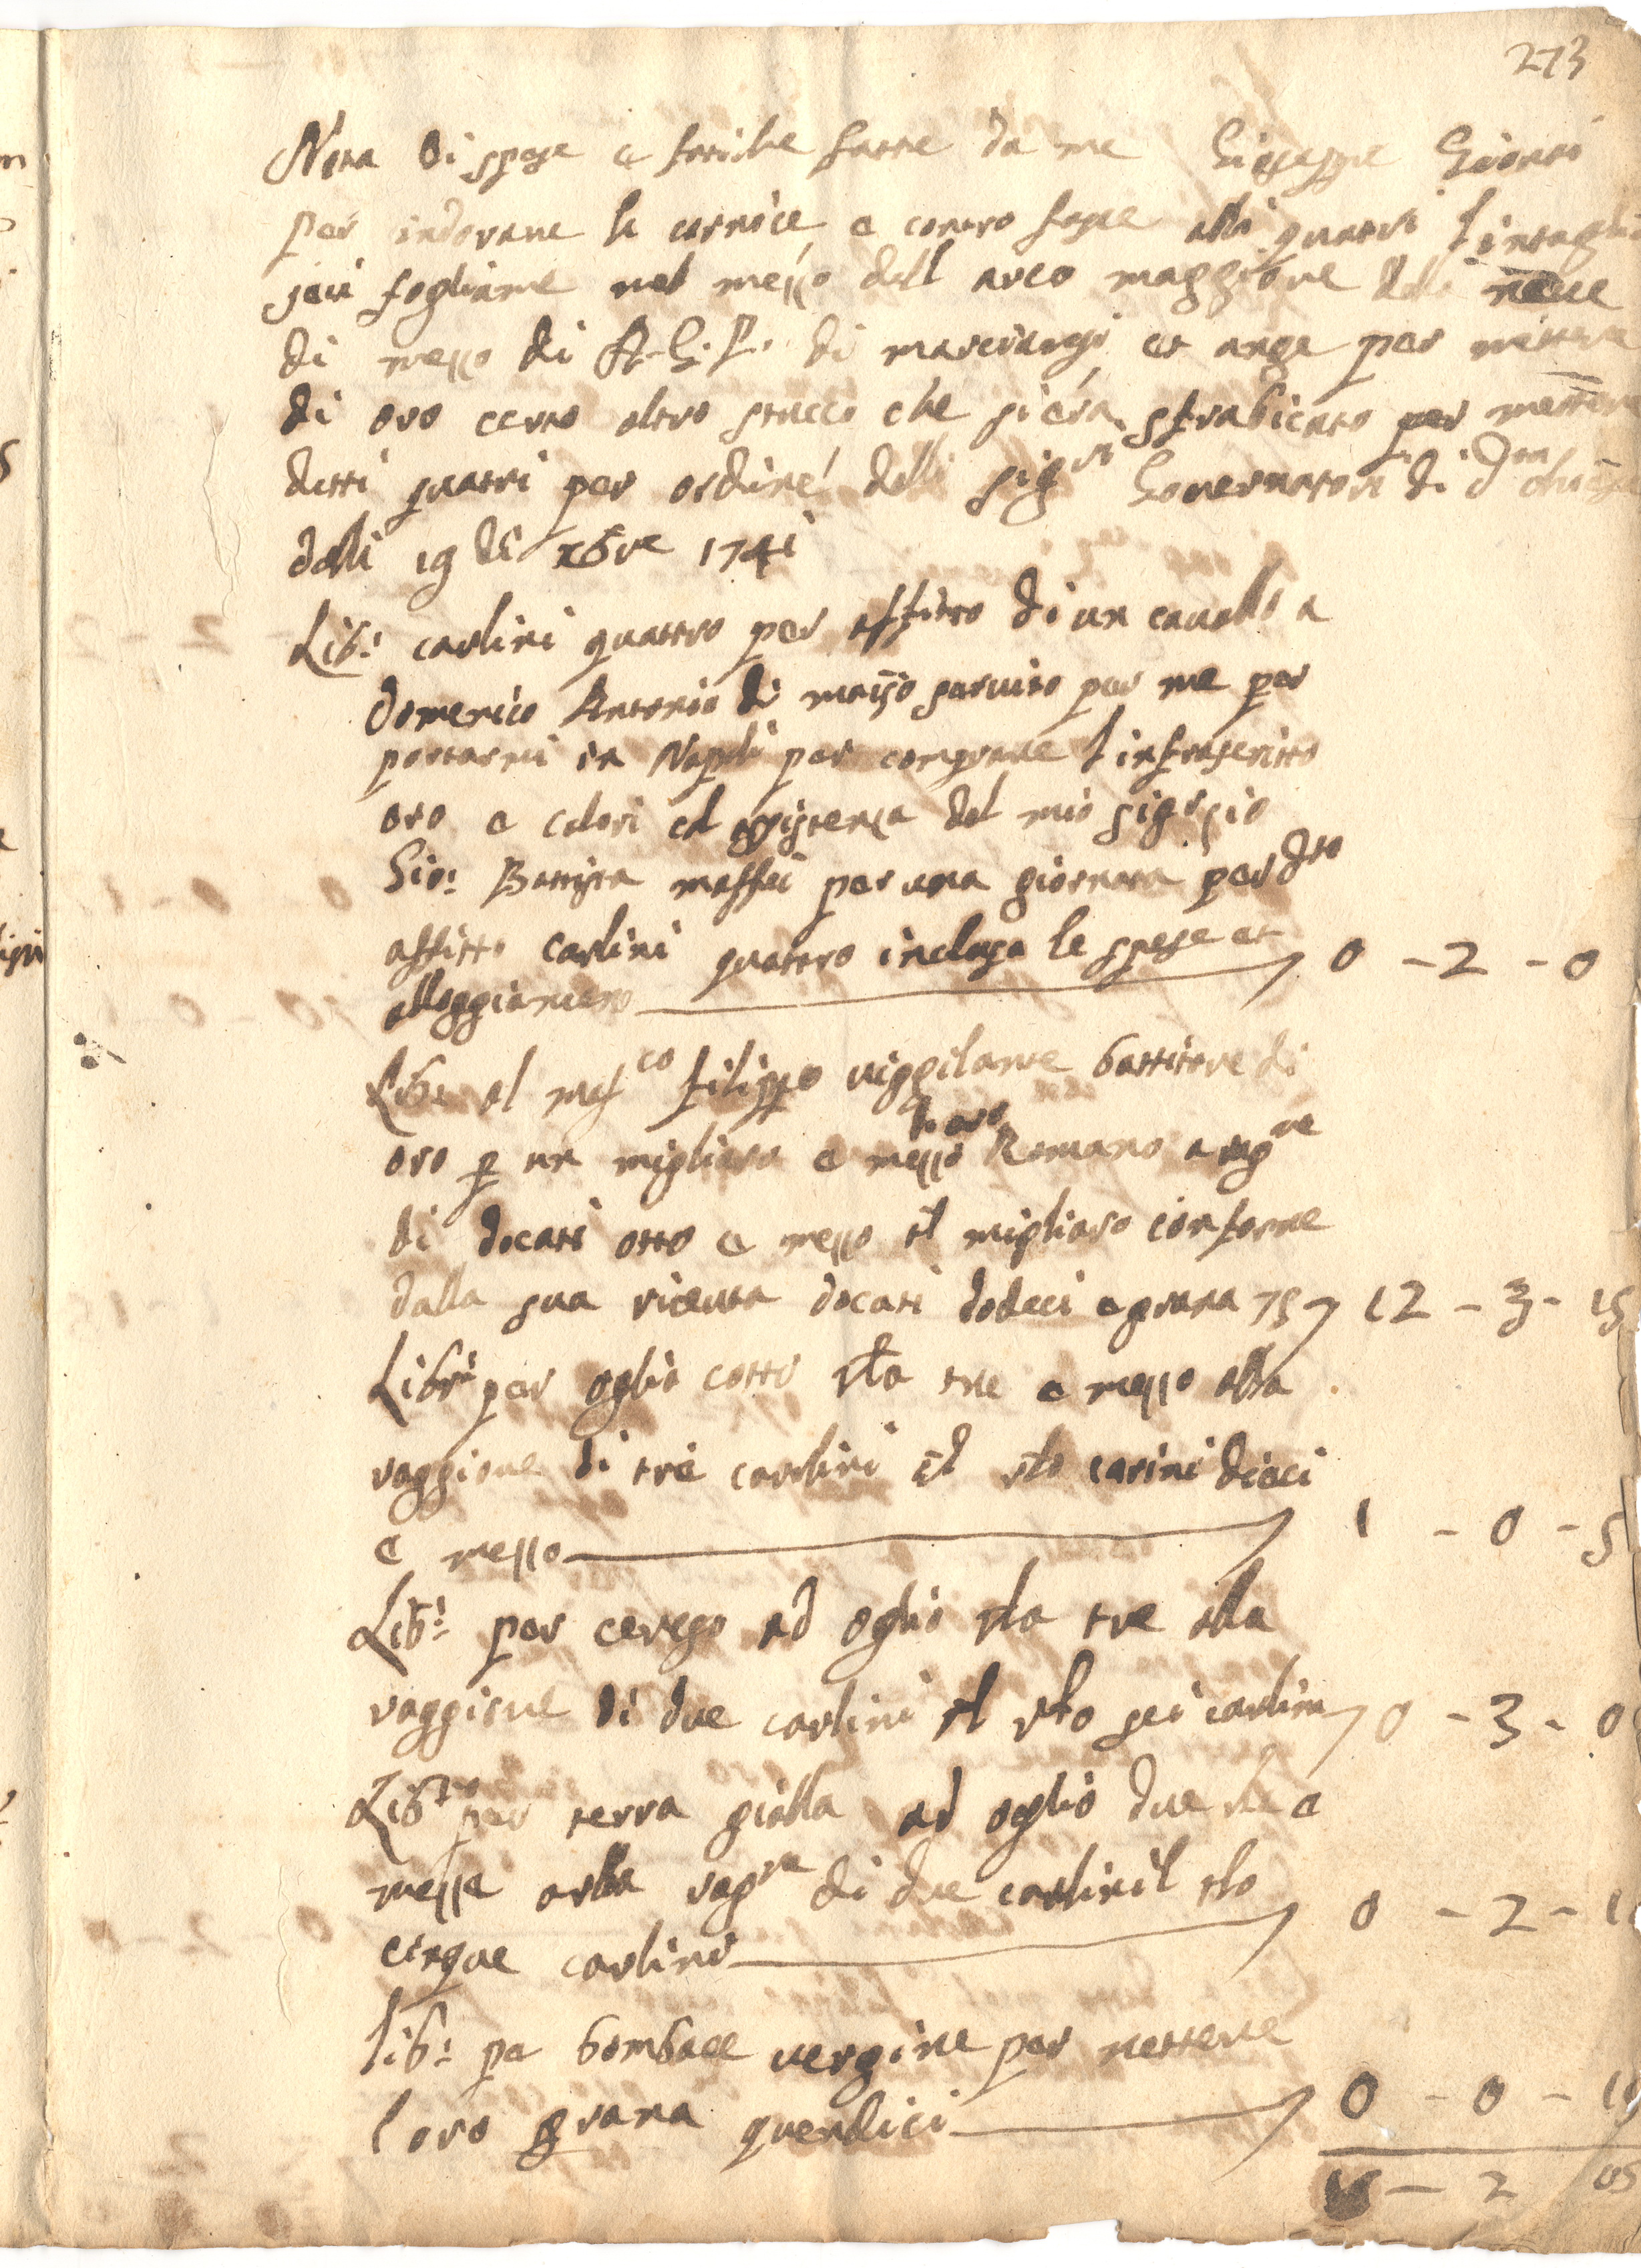 273
Nota di spese e fatiche fatte da me Gioseppe Giorno
per indorane la cornice e contro fogne alli quatri l'intaglio
seu fogliame nel mezzo dell arco maggiore della naue
di mezzo di A.G.P. di marcianesi et auge per mettere
di oro certo altro stucco che si era frabicato per mettere
detti quatri per ordine delli sigri Gouernatori di dta chiesa
dalli 19 di xbre 1741
Lib: carlini quattro per affitto di un cauallo a
Domenico Antonio di maijo seruito per me per
portarmi in Napoli per comprare l'infrascritto
oro e colori col assistenza del mio sigr zio
Gio: Battista maffei per una giornata per dto
affitto carlini quattro inclusa le spese et
alloggiamento 0 - 2 - 0
Lib: al magco filippo uiggilante battitore di
di oro
oro p un migliaro e mezzo Romano a ragne
di docati otto e mezzo il migliaro conforme
dalla sua riceuta docati dodeci e grana 75 12 - 3 - 15
Libri per oglio cotto rla tre e mezzo alla
raggione di tre carlini il rlo carini dieci
e mezzo 1 - 0 - 5
Lib: per cerego ad oglio rla tre alla
raggione di due carlini il rlo sei carlini 0 - 3 - 0
Libto per terra gialla ad oglio due rla e
mezza alla ragne di due carlini il rlo
cinque carlini 0 - 2 - 1
lib: pe bombace uergine per mettere
l oro grana quendici 0 - 0 - 15
- 2 05